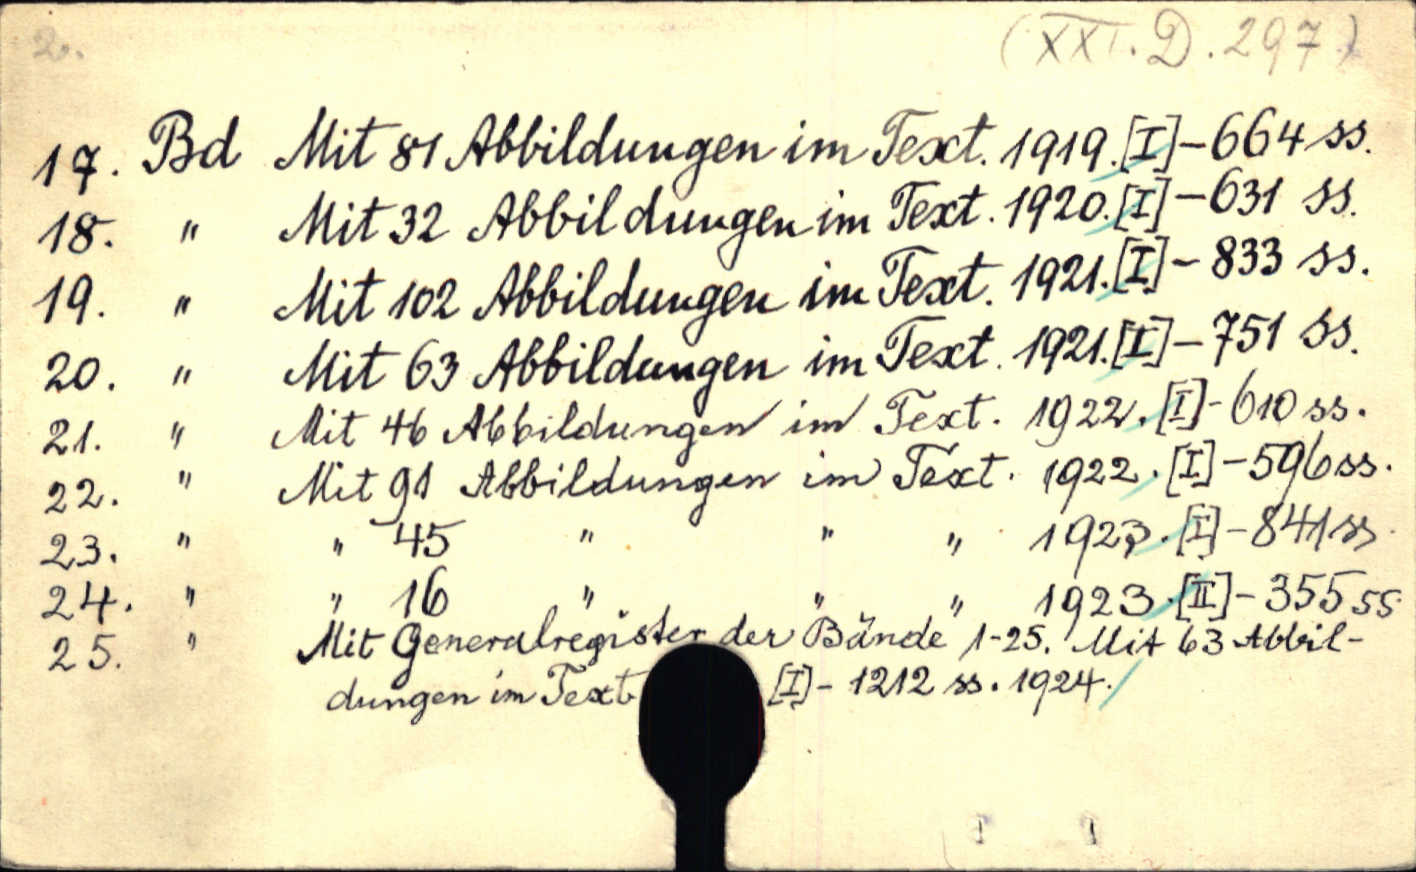 2.
(XXI. D. 297)
17. Bd Mit 81 Abbildungen im Text. 1919. [I]-664 ss.
18. " Mit 32 Abbildungen im Text. 1920. [I]-631 ss.
19. " Mit 102 Abbildungen im Text. 1921. [I]-833 ss.
20. " Mit 63 Abbildungen im Text. 1921. [I]-751 ss.
21. " Mit 46 Abbildungen im Text. 1922. [I]-610 ss.
22. " Mit 91 Abbildungen im Text. 1922. [I]-596 ss.
23. " " 45 " " " 1923. [I]-841 ss
24. " " 16 " " " 1923. [II]-355 ss
25. " Mit Generalregister der Bände 1-25. Mit 63 Abbil-
dungen im Text [I]- 1212 ss. 1924.